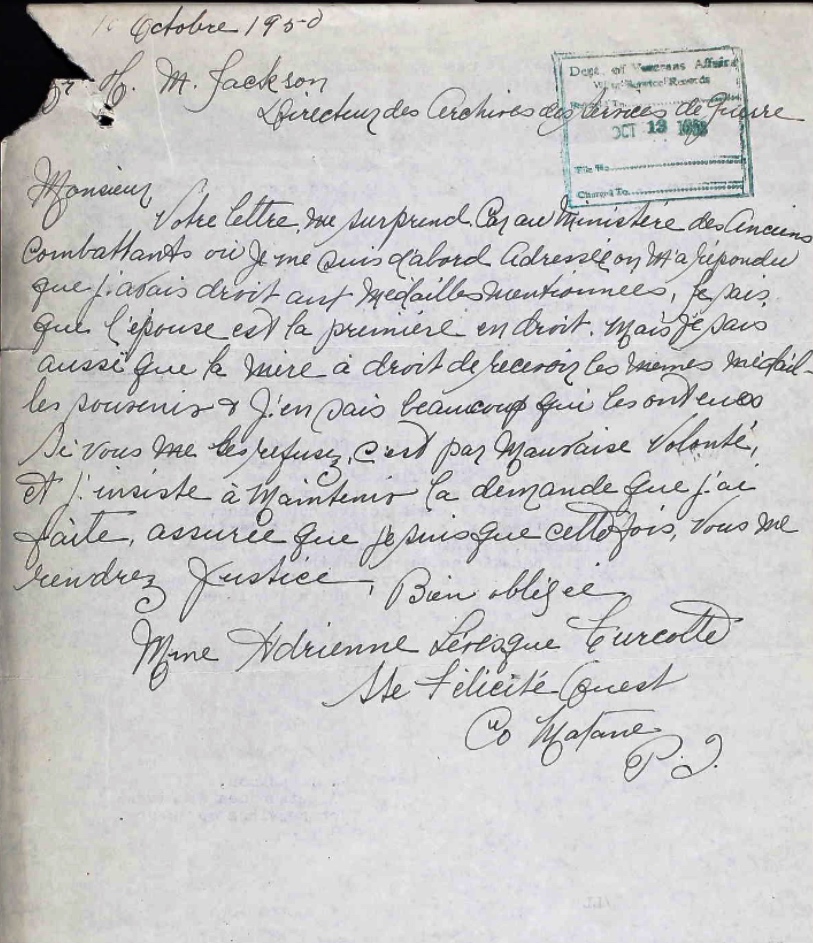 Octobre 1950
H. M. Jackson
Directeur des Archives des Services de Guerre
Dept. of Veterans Affairs
War Service Records
OCT 13 1950
File No.
Charged To.
Monsieur
Votre lettre me surprend. Car au Ministère des Anciens
Combattants où Je me suis d'abord Adressée on M'a répondu
que j'avais droit aux Médailles mentionnées, je sais
que l'épouse est la première en droit. Mais je sais
aussi que la Mère à droit de recevoir les mêmes médail-
les souvenir & J'en sais beaucoup qui les ont eues
Si vous me les refusez, c'est par Mauvaise Volonté,
Et j'insiste à Maintenir la demande que j'ai
faite, assurée que je suis que cette fois, Vous me
rendrez Justice, Bien obligée
Mme Adrienne Lévesque Turcotte
Ste Félicité Ouest
Co Matane
P. Q.